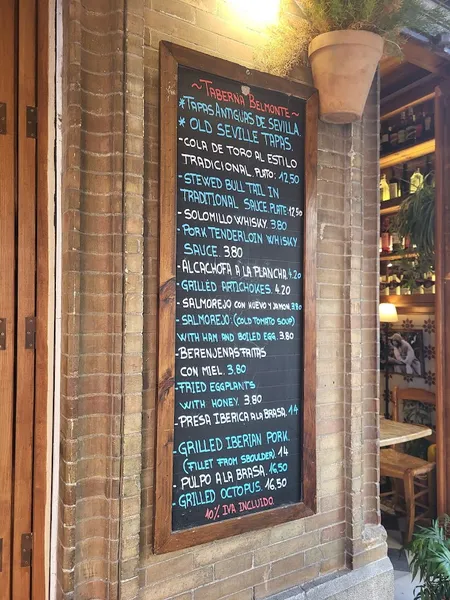 ~TABERNA BELMONTE~
*TAPAS ANTIGUAS DE SEVILLA
* OLD SEVILLE TAPAS
-COLA DE TORO AL ESTILO
TRADICIONAL. PLATO: 12,50
-STEWED BULL TAIL IN
TRADITIONAL SAUCE. PLATE: 12,50
-SOLOMILLO WHISKY. 3.80
-PORK TENDERLOIN WHISKY
SAUCE. 3.80
-ALCACHOFA A LA PLANCHA. 4.20
-GRILLED ARTICHOKES. 4.20
-SALMOREJO CON HUEVO Y JAMON. 3.80
-SALMOREJO: (COLD TOMATO SOUP)
WITH HAM AND BOILED EGG. 3.80
-BERENJENAS FRITAS
CON MIEL. 3.80
-FRIED EGGPLANTS
WITH HONEY. 3.80
-PRESA IBERICA A LA BRASA. 14
-GRILLED IBERIAN PORK.
(FILLET FROM SBOULDER). 14
-PULPO A LA BRASA. 16,50
-GRILLED OCTOPUS. 16,50
10% IVA INCLUIDO